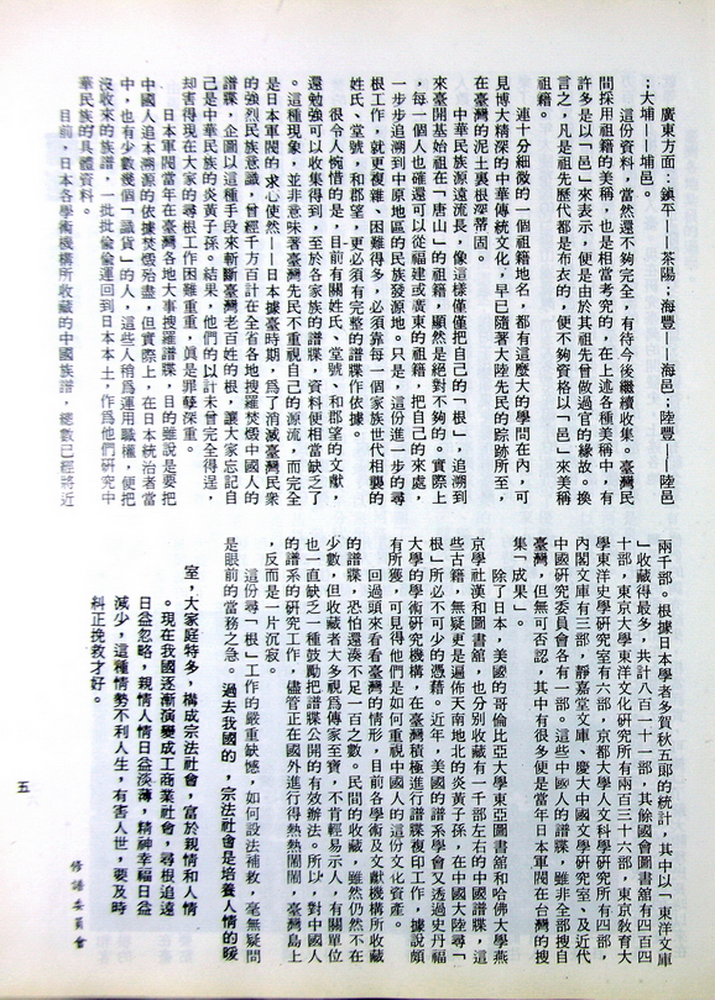 廣東方面：鎮平——茶陽；海豐——海邑；陸豐——陸邑
；大埔——埔邑。
這份資料，當然還不夠完全，有待今後繼續收集。臺灣民
間採用祖籍的美稱，也是相當考究的，在上述各種美稱中，有
許多是以「邑」來表示，便是由於其祖先曾做過官的緣故。換
言之，凡是祖先歷代都是布衣的，便不夠資格以「邑」來美稱
祖籍。
連十分細微的一個祖籍地名，都有這麼大的學問在內，可
見博大精深的中華傳統文化，早已隨著大陸先民的踪跡所至，
在臺灣的泥土裏根深蒂固。
中華民族源遠流長，像這樣僅僅把自己的「根」，追溯到
來臺開基始祖在「唐山」的祖籍，顯然是絕對不夠的。實際上
，每一個人也確還可以從福建或廣東的祖籍，把自己的來處，
一步步追溯到中原地區的民族發源地。只是，這份進一步的尋
根工作，就更複雜、困難得多，必須靠每一個家族世代相襲的
姓氏、堂號，和郡望，更必須有完整的譜牒作依據。
很令人惋惜的是，目前有關姓氏、堂號、和郡望的文獻，
還勉強可以收集得到，至於各家族的譜牒，資料便相當缺乏了
。這種現象，並非意味著臺灣先民不重視自己的源流，而完全
是日本軍閥的求心使然——日本據臺時期，爲了消滅臺灣民衆
的強烈民族意識，曾經千方百計在全省各地搜羅焚燬中國人的
譜牒，企圖以這種手段來斬斷臺灣老百姓的根，讓大家忘記自
己是中華民族的炎黃子孫。結果，他們的以計未曾完全得逞，
却害得現在大家的尋根工作困難重重，眞是罪孽深重。
日本軍閥當年在臺灣各地大事搜羅譜牒，目的雖說是要把
中國人追本溯源的依據焚燬殆盡，但實際上，在日本統治者當
中，也有少數幾個「識貨」的人，這些人稍爲運用職權，便把
沒收來的族譜，一批批偷偷運回到日本本土，作爲他們研究中
華民族的具體資料。
目前，日本各學術機構所收藏的中國族譜，總數已經將近
兩千部。根據日本學者多賀秋五郎的統計，其中以「東洋文庫
」收藏得最多，共計八百一十一部，其餘國會圖書舘有四百四
十部，東京大學東洋文化研究所有兩百三十六部，東京敎育大
學東洋史學研究室有六部，京都大學人文科學研究所有四部，
內閣文庫有三部，靜嘉堂文庫、慶大中國文學研究室、及近代
中國研究委員會各有一部。這些中國人的譜牒，雖非全部搜自
臺灣，但無可否認，其中有很多便是當年日本軍閥在台灣的搜
集「成果」。
除了日本，美國的哥倫比亞大學東亞圖書舘和哈佛大學燕
京學社漢和圖書舘，也分別收藏有一千部左右的中國譜牒，這
些古籍，無疑更是遍佈天南地北的炎黃子孫，在中國大陸尋「
根」所必不可少的憑藉。近年，美國的譜系學會又透過史丹福
大學的學術研究機構，在臺灣積極進行譜牒複印工作，據說頗
有所獲，可見得他們是如何重視中國人的這份文化資產。
回過頭來看看臺灣的情形，目前各學術及文獻機構所收藏
的譜牒，恐怕還湊不足一百之數。民間的收藏，雖然仍然不在
少數，但收藏者大多視爲傳家至寶，不肯輕易示人，有關單位
也一直缺乏一種鼓勵把譜牒公開的有效辦法。所以，對中國人
的譜系的研究工作，儘管正在國外進行得熱熱鬧鬧，臺灣島上
，反而是一片沉寂。
這份尋「根」工作的嚴重缺憾，如何設法補救，毫無疑問
是眼前的當務之急。過去我國的，宗法社會是培養人情的暖
室，大家庭特多，構成宗法社會，富於親情和人情
。現在我國逐漸演變成工商業社會，尋根追遠
日益忽略，親情人情日益淡薄，精神幸福日益
減少，這種情勢不利人生，有害人世，要及時
糾正挽救才好。
修譜委員會
五